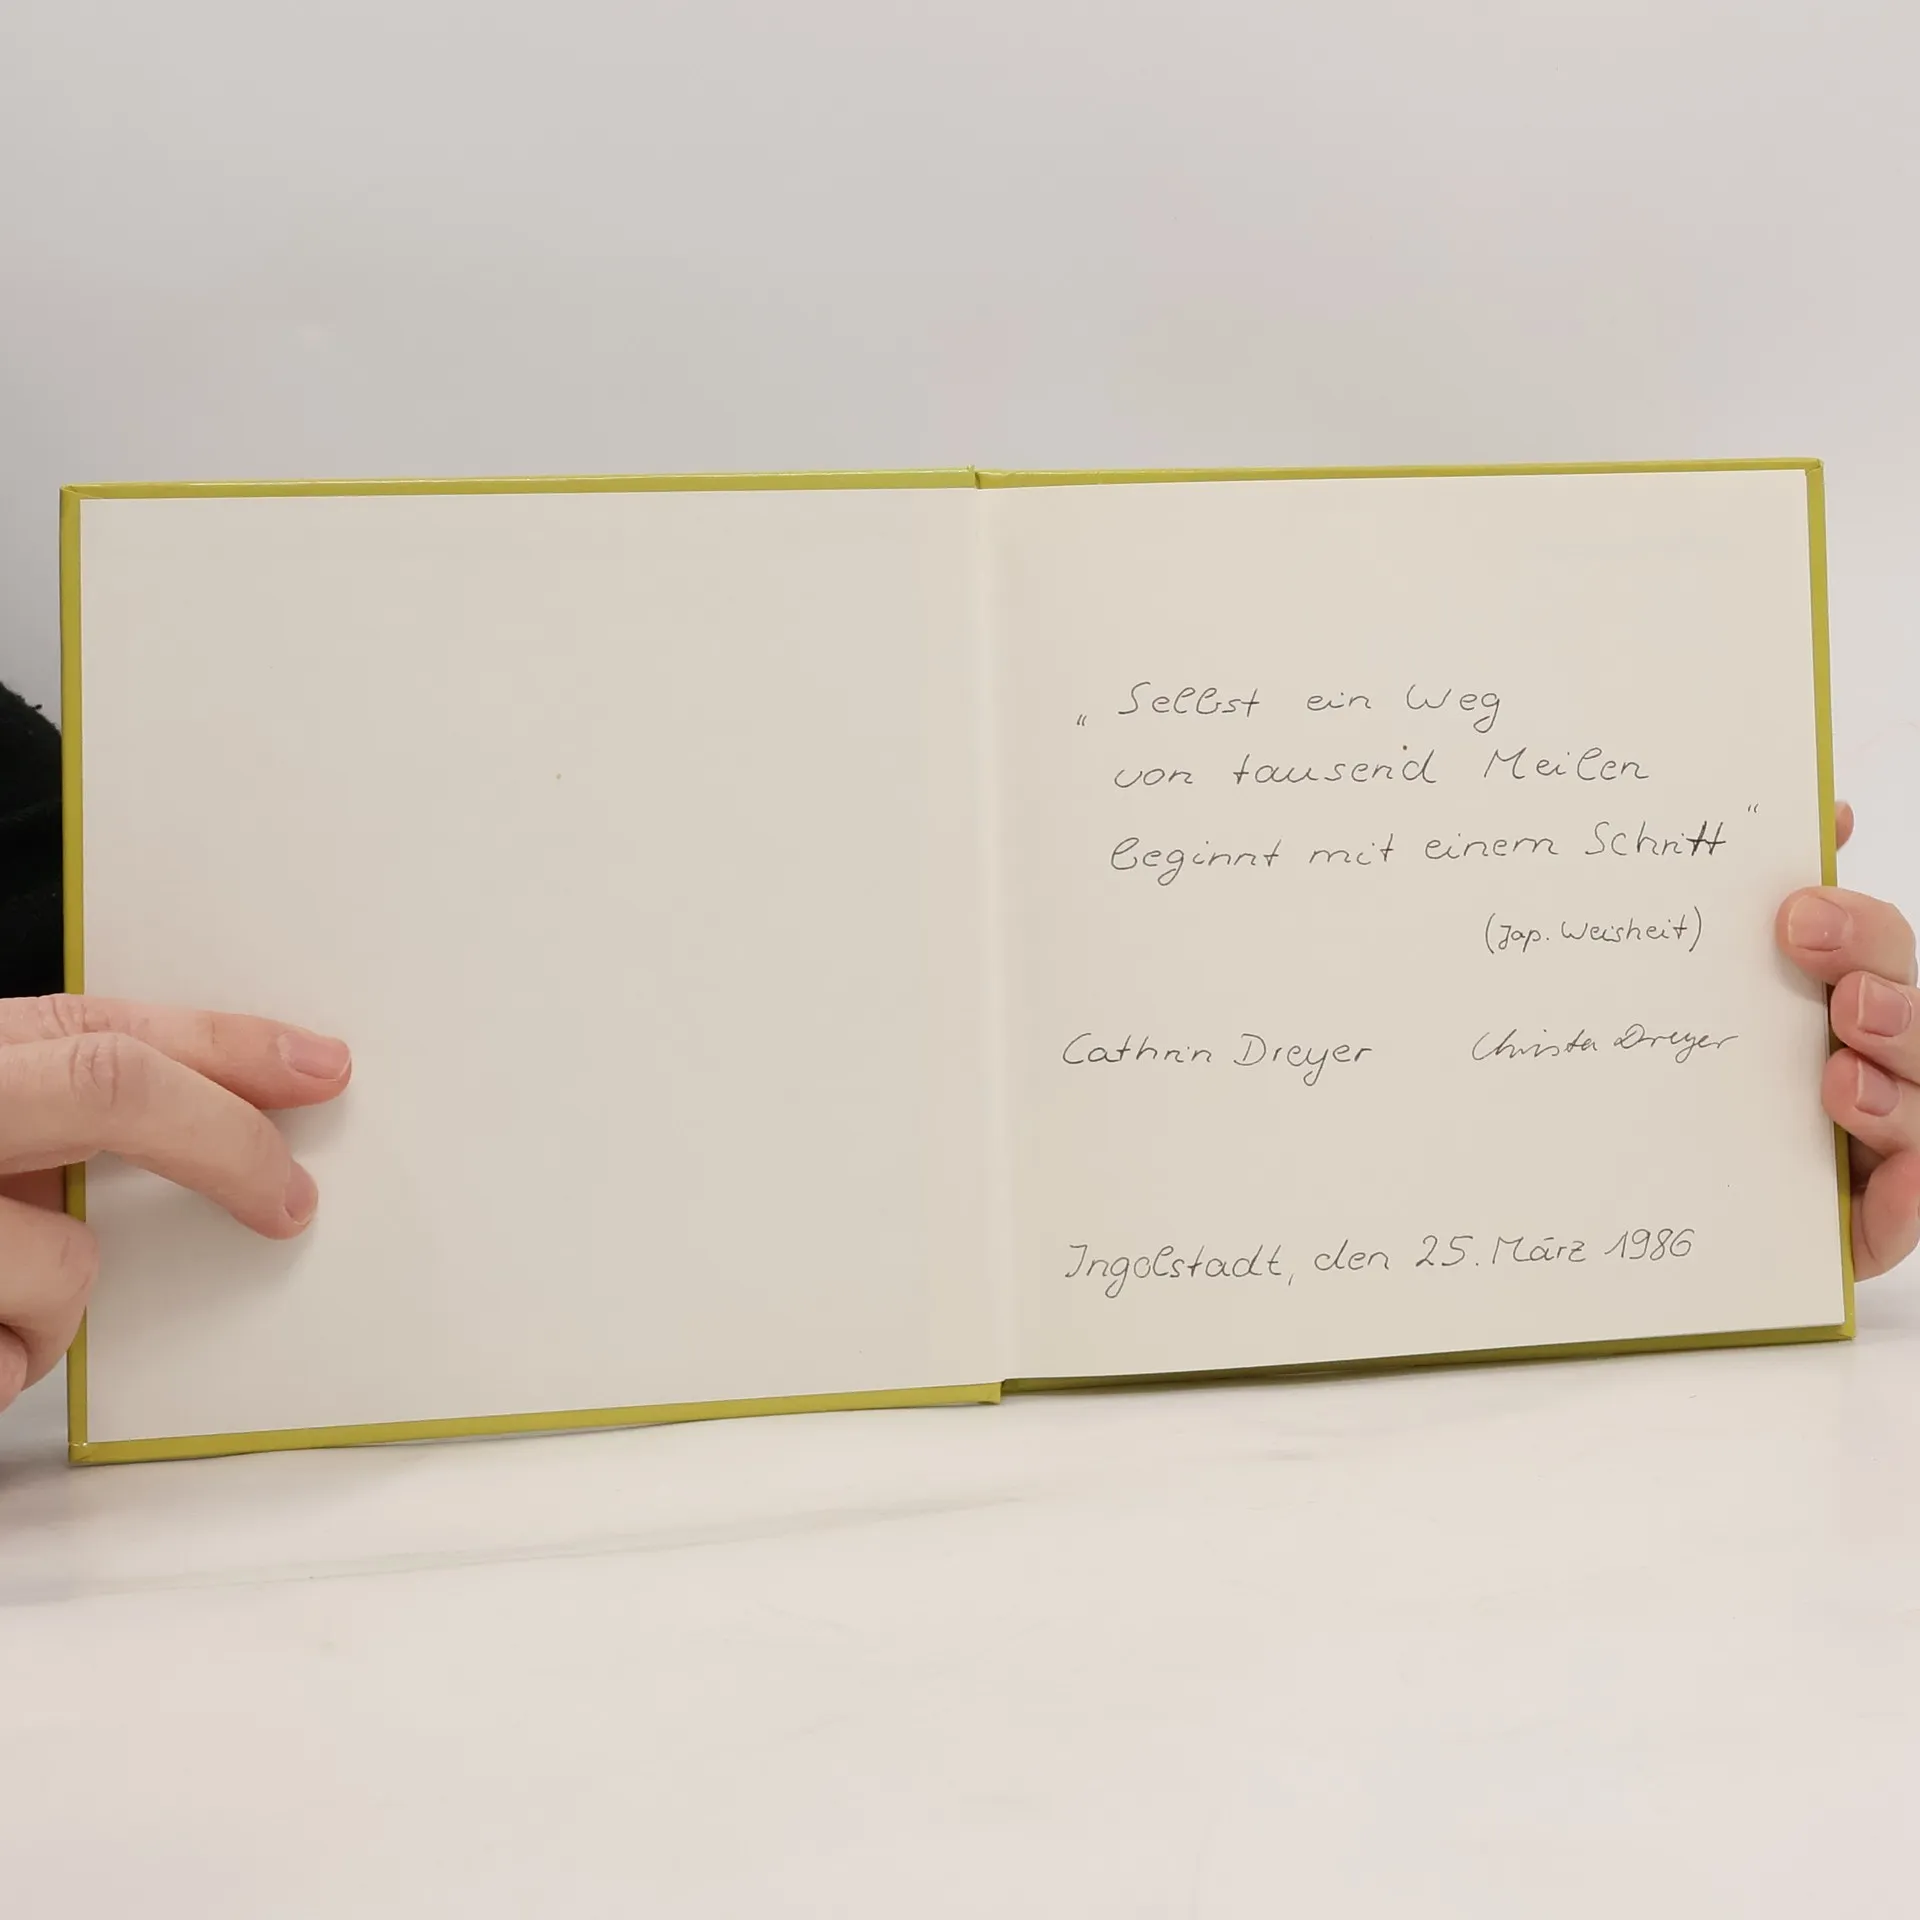 „Selbst ein Weg
von tausend Meilen
beginnt mit einem Schritt“
(Jap. Weisheit)
Cathrin Dreyer Christa Dreyer
Ingolstadt, den 25. März 1986